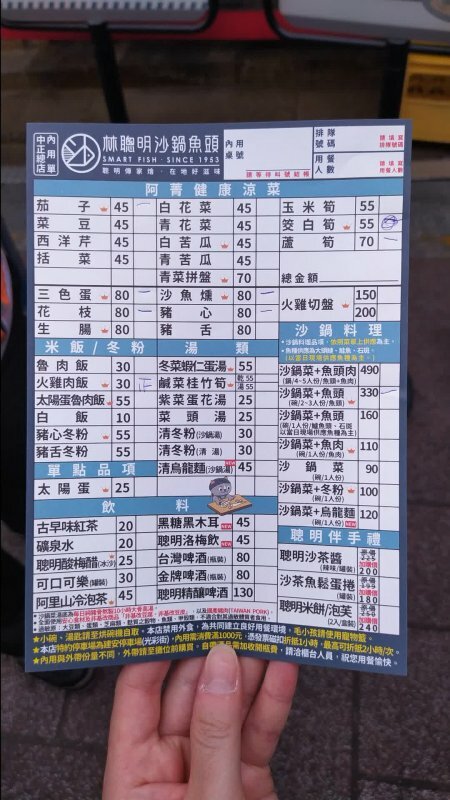 內用單
中正總店
林聰明沙鍋魚頭
SMART FISH · SINCE 1953
聰明傳家燴 · 在地好滋味
內用
桌號
排隊
號碼
用餐
人數
阿菁健康涼菜
茄子 45
菜豆 45
西洋芹 45
括菜 45
三色蛋 80
花枝 80
生腸 80
白花菜 45
青花菜 45
白苦瓜 45
青苦瓜 45
青菜拼盤 70
沙魚燻 80
豬心 80
豬舌 80
玉米筍 55
筊白筍 55
蘆筍 70
總金額
火雞切盤 150
200
米飯/冬粉
魯肉飯 30
火雞肉飯 30
太陽蛋魯肉飯 55
白飯 10
豬心冬粉 55
豬舌冬粉 55
單點品項
太陽蛋 25
湯類
冬菜蝦仁蛋湯 55
鹹菜桂竹筍 乾55 湯55
紫菜蛋花湯 25
菜頭湯 25
清冬粉(沙鍋湯) 30
清冬粉(清湯) 30
清烏龍麵(沙鍋湯) NEW 45
沙鍋料理
(以當日現場供應魚種為主)
沙鍋菜+魚頭肉 490
(鍋/4-5人份/魚頭+魚肉)
沙鍋菜+魚頭 330
(碗/2-3人份/魚頭)
沙鍋菜+魚頭 160
(碗/1人份/鱸魚頭、石斑
以當日現場供應魚種為主)
沙鍋菜+魚肉 110
(碗/1人份/魚肉)
沙鍋菜 90
(碗/1人份)
沙鍋菜+冬粉 100
(碗/1人份)
沙鍋菜+烏龍麵 120
(碗/1人份) NEW
飲料
古早味紅茶 20
礦泉水 20
聰明酸梅醋(冰沙) 25
可口可樂(罐裝) 30
阿里山冷泡茶 45
黑糖黑木耳 NEW 45
聰明洛梅飲 NEW 45
台灣啤酒(瓶裝) 80
金牌啤酒(瓶裝) 80
聰明精釀啤酒 130
聰明伴手禮
聰明沙茶醬
(辣味/罐裝)
加購價
200
沙茶魚鬆蛋捲
(罐裝)
加購價
180
聰明米餅/泡芙
(2入/盒裝)
加購價
240
★小碗、湯匙請至烘碗機自取。本店禁用外食,為共同建立良好用餐環境,毛小孩請使用寵物籠。
★本店特約停車場為建安停車場(光彩街),內用需消費滿1000元,憑發票磁扣折抵1小時,最高可折抵2小時/次。